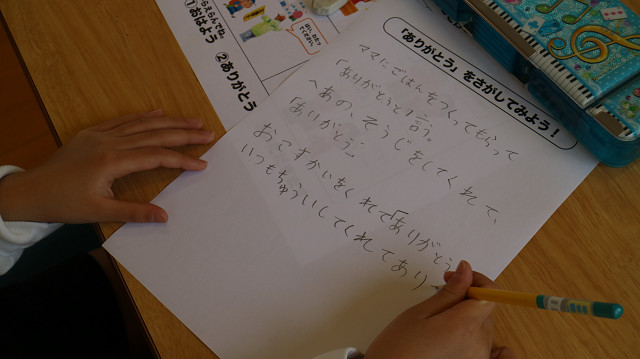 らえらんでね
①おはよう ②ありがとう
「ありがとう」をさがしてみよう!
ママにごはんをつくってもらって
「ありがとうと言う。
へあの、そうじをしてくれて、
「ありがとう」
おこずかいをくれて「ありがとう
いつもちゅういしてくれてあり